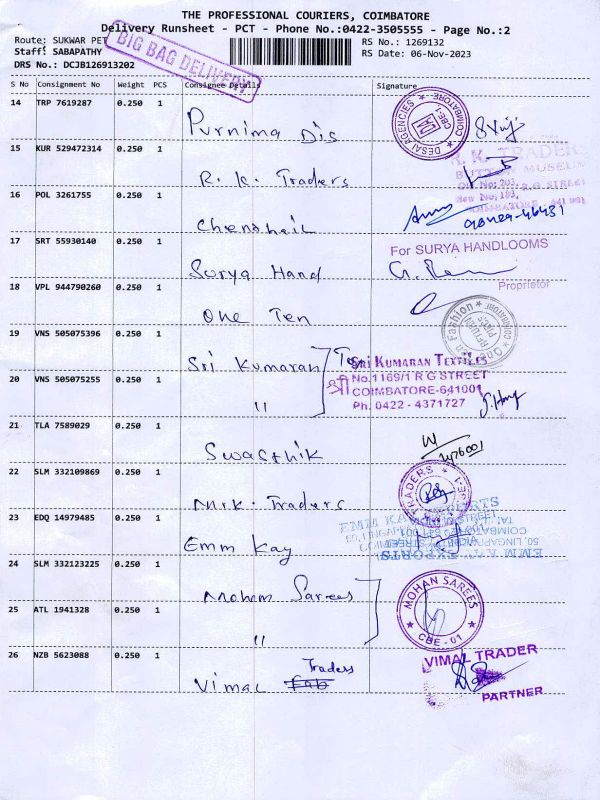 THE PROFESSIONAL COURIERS, COIMBATORE
Delivery Runsheet - PCT - Phone No.:0422-3505555 - Page No.:2
Route: SUKWAR PET
RS No.: 1269132
Staff: SABAPATHY
RS Date: 06-Nov-2023
DRS No.: DCJB126913202
BIG BAG DELIVERY
S No Consignment No Weight PCS Consignee Details Signature
14 TRP 7619287 0.250 1 Purnima Dis
DESAI AGENCIES ★ COIMBATORE ★ CBE-1
15 KUR 529472314 0.250 1 R. K. Traders
R. K. TRADERS
BUTTON MUSEUM
Old No. 203,
R.G. STREET
New No. 193,
COIMBATORE
16 POL 3261755 0.250 1
17 SRT 55930140 0.250 1 Surya Hand
For SURYA HANDLOOMS
Proprietor
18 VPL 944790260 0.250 1 One Ten
Fashion ★ COIMBATORE ★
19 VNS 505075396 0.250 1 Sri Kumaran Tex
SRI KUMARAN TEXTILES
श्री No.1169/1 R G STREET
20 VNS 505075255 0.250 1 "
COIMBATORE-641001
Ph. 0422 - 4371727
21 TLA 7589029 0.250 1 Swasthik
22 SLM 332109869 0.250 1 M.r.k. Traders
TRADERS ★
23 EDQ 14979485 0.250 1 Emm Kay
EMM KAY EXPORTS
24 SLM 332123225 0.250 1 Mohan Sarees
MOHAN SAREES ★ CBE - 01 ★
25 ATL 1941328 0.250 1 "
26 NZB 5623088 0.250 1 Vimal Traders
VIMAL TRADER
PARTNER